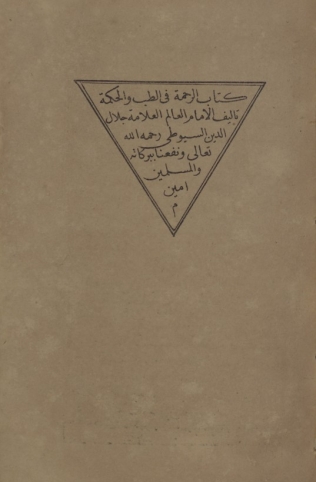 كتاب الرحمة فى الطب والحكمة
تاليف الامام العالم العلامة جلال
الدين السيوطى رحمه الله
تعالى ونفعنا ببركاته
والمسلمين
امين
م